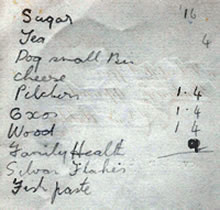 Sugar 16
Tea 4
Dog small Bis
cheese
Pilchers 1.4
Oxos 1.4
Wood 1 4
Family Health 9
Silvan Flakes
Fish paste